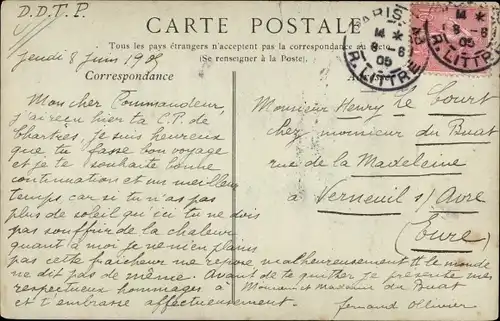 D.D.T.P.
CARTE POSTALE
Tous les pays étrangers n'acceptent pas la correspondance au recto
(Se renseigner à la Poste).
Jeudi 8 juin 1905
Correspondance
Mon cher Commandeur,
j'ai reçu hier ta C.P. de
Chartres, je suis heureux
que tu fasse bon voyage
et je te souhaite bonne
continuation et un meilleur
temps car si tu n'as pas
plus de soleil qu'ici tu ne dois
pas souffrir de la chaleur
quant à moi je ne m'en plains
pas cette fraîcheur me repose malheureusement tt le monde
ne dit pas de même. Avant de te quitter je présente mes
respectueux hommages à Monsieur et madame du Buat
et t'embrasse affectueusement.
fernand Ollivier
PARIS
8 -6
05
R. LITTRÉ
8 -6
05
R. LITTRÉ
Monsieur Henry le Court
chez monsieur du Buat
rue de la Madeleine
à Verneuil s/ Avre
(Eure)